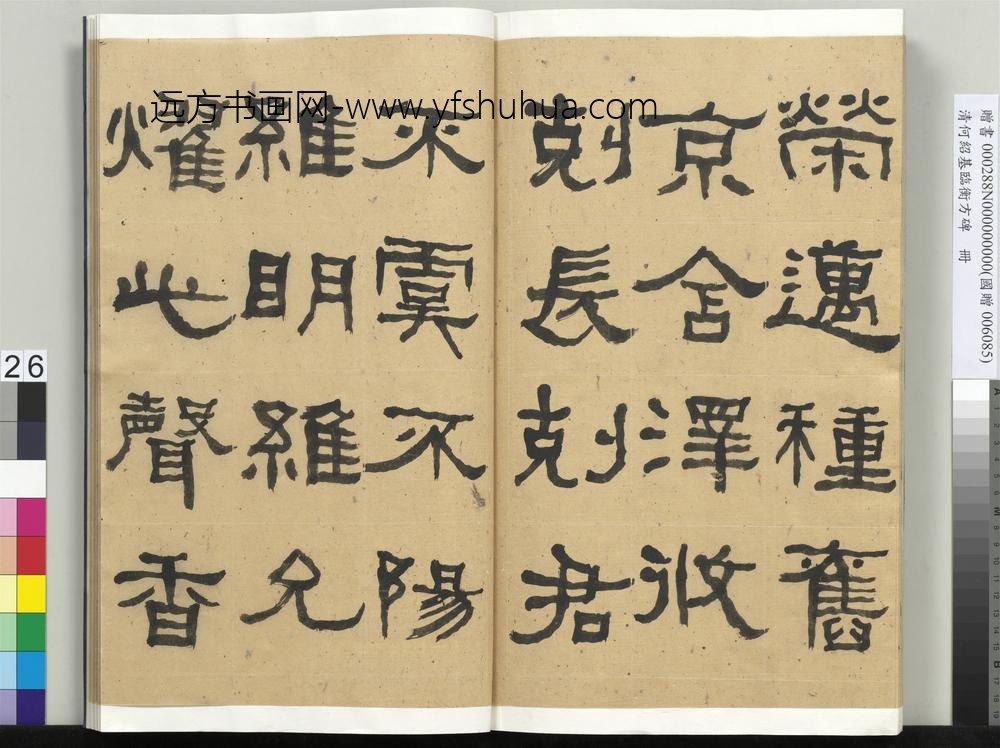 远方书画网-www.yfshuhua.com
榮邁種舊
京舍澤攸
剋長剋君
不虞不陽
維明維允
燿此聲香
贈書 000288N000000000(國贈 006085)
清何紹基臨衡方碑 冊
26